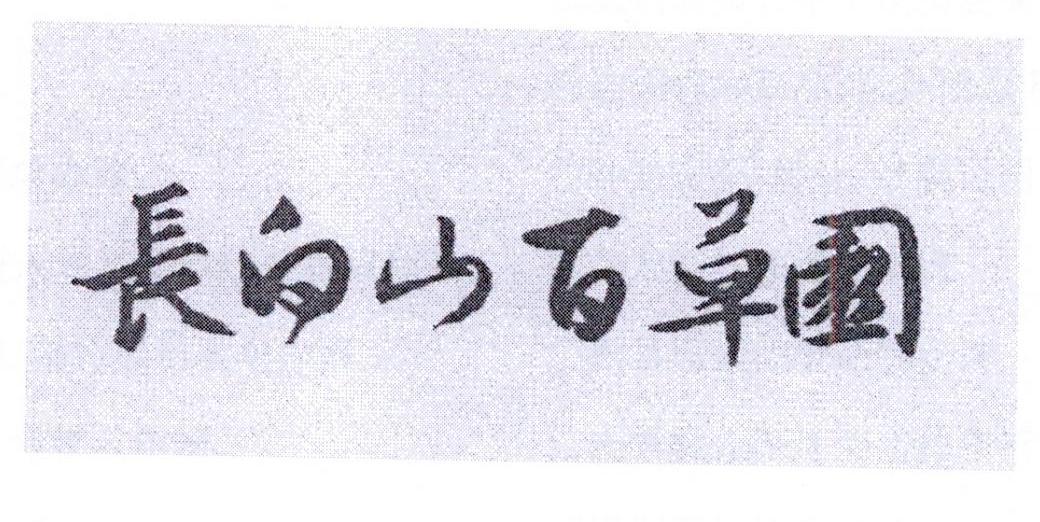 長白山百草園